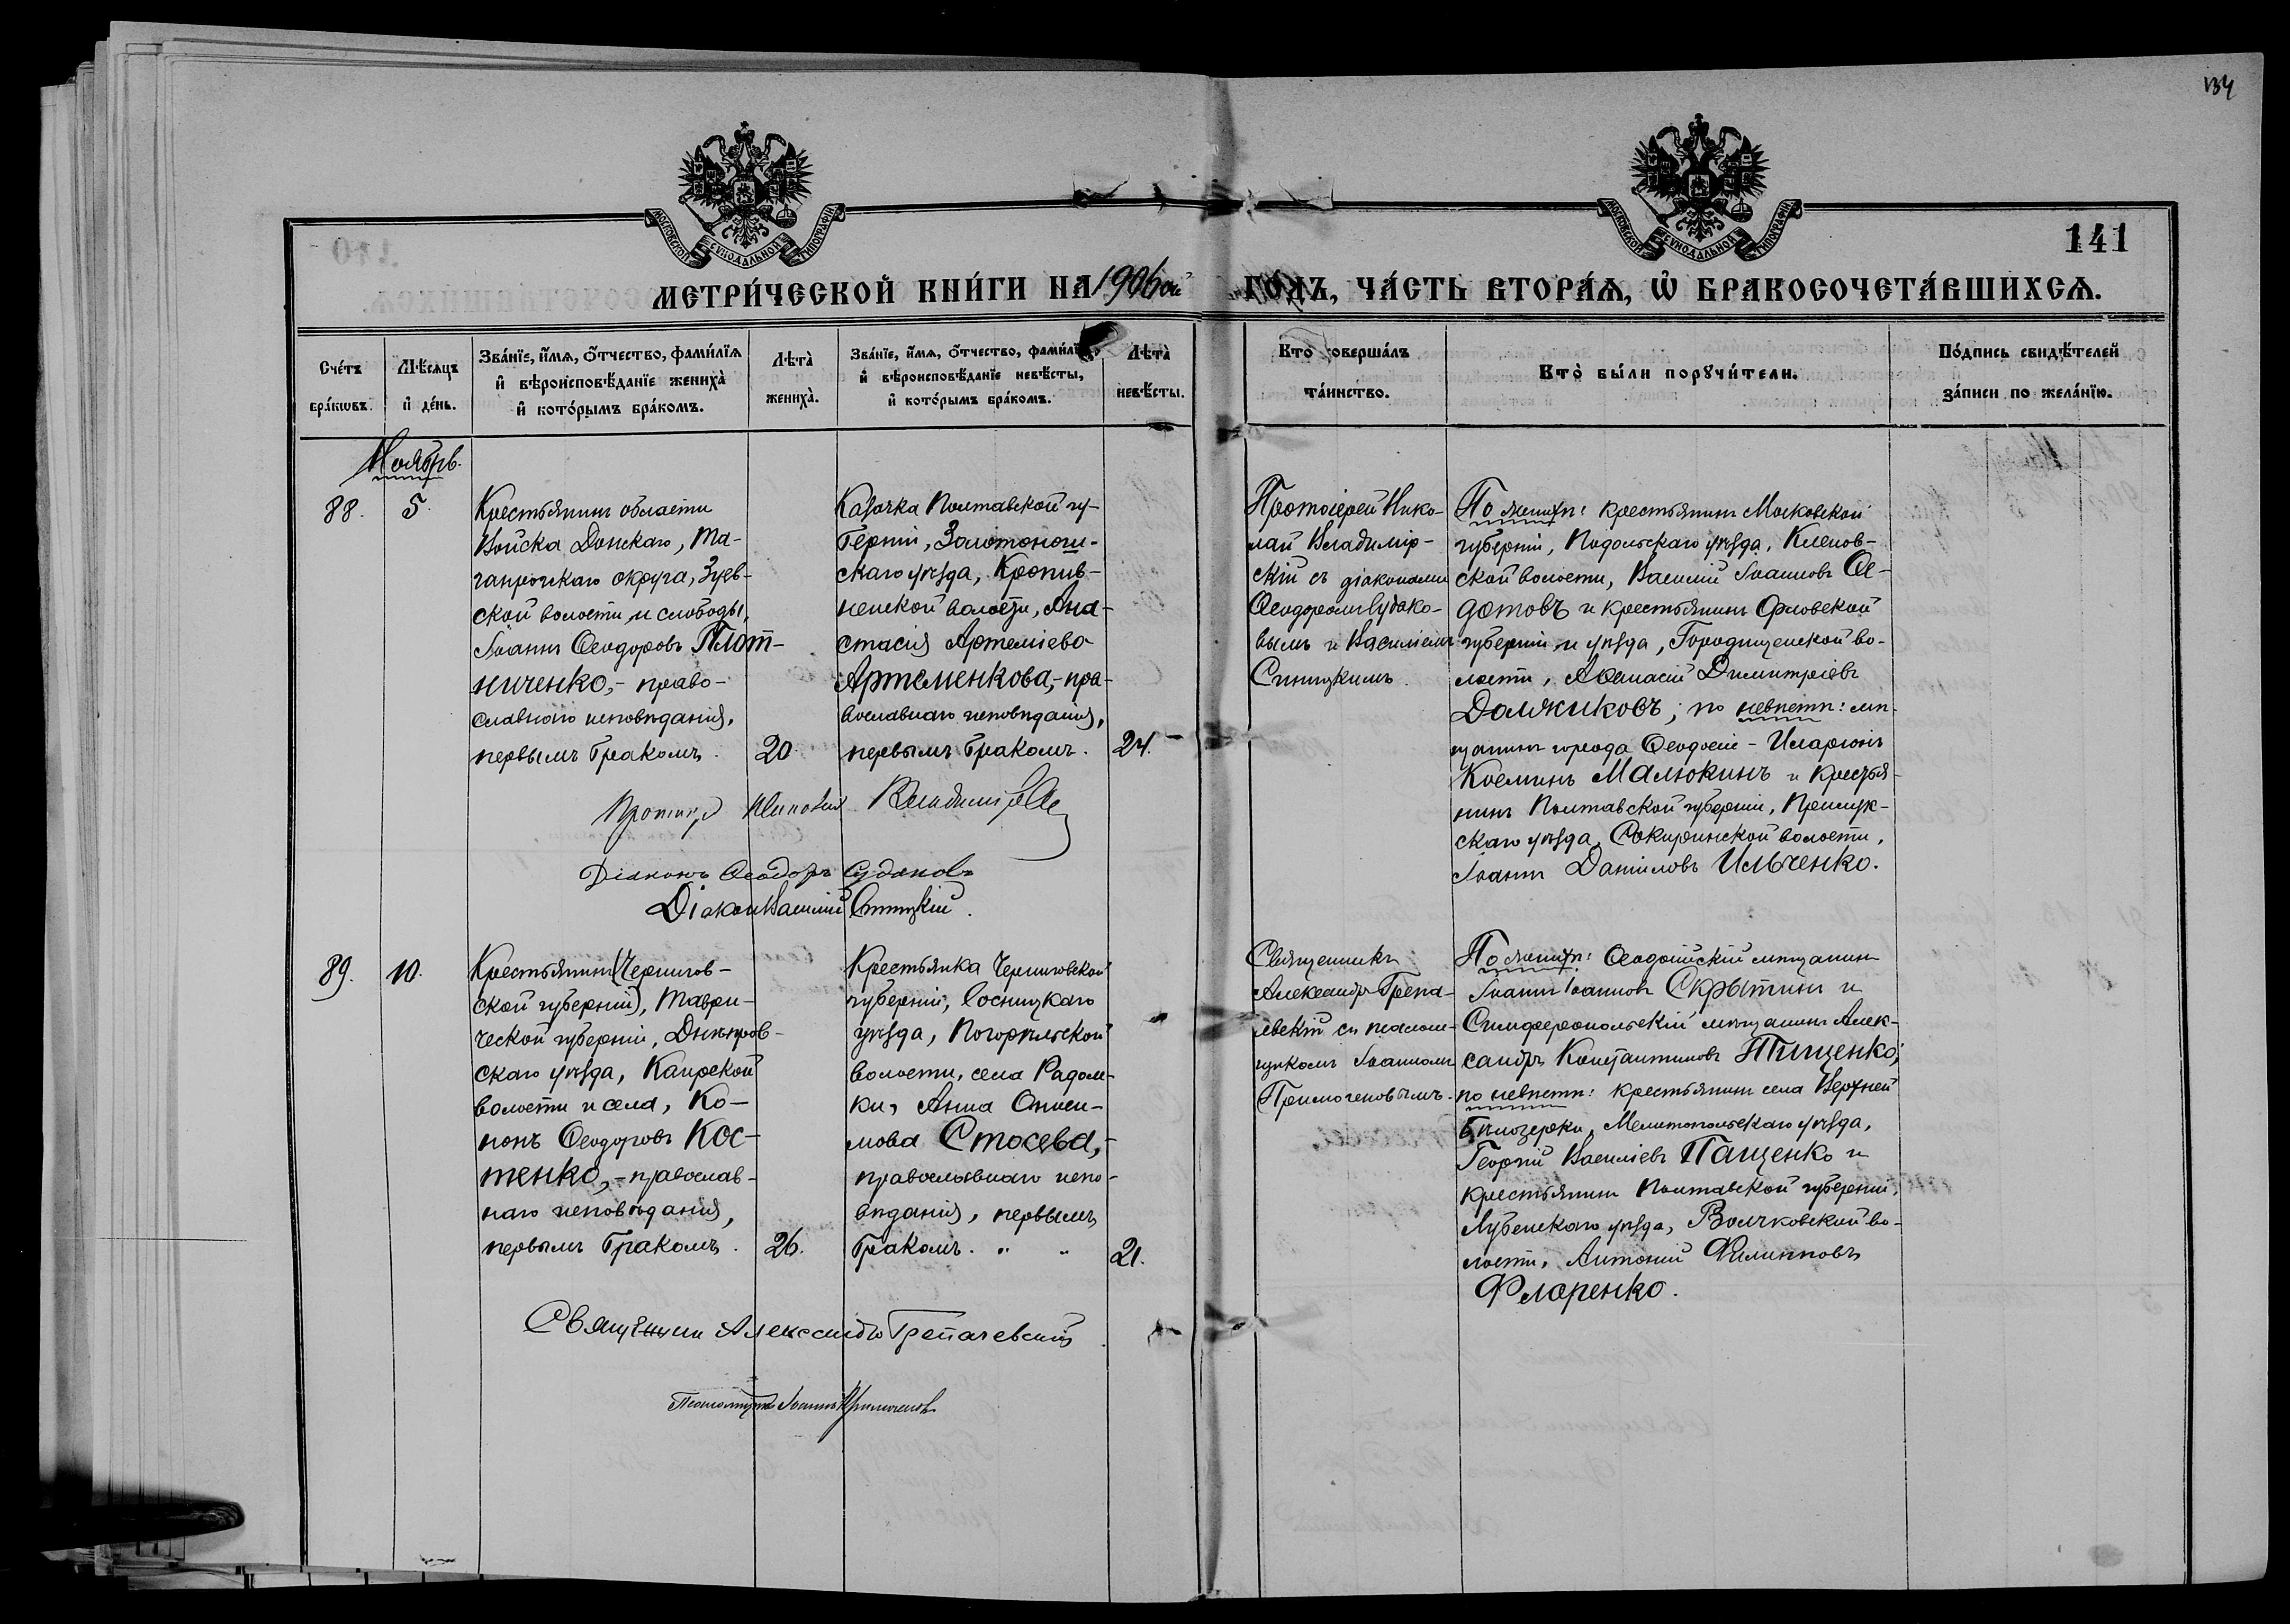 134
МОСКОВСКОЙ СѴНОДАЛЬНОЙ ТИПОГРАФІИ
МОСКОВСКОЙ СѴНОДАЛЬНОЙ ТИПОГРАФІИ
141
МЕТРИ́ЧЕСКОЙ КНИ́ГИ НА 1906ой ГО́ДЪ, ЧА́СТЬ ВТОРА́Ѧ, Ѽ БРАКОСОЧЕТА́ВШИХСѦ.
Сче́тъ
бра́кѡвъ.
Мѣ́сяцъ
и҆ де́нь.
Зва́нїе, и҆́мѧ, ѻ҆́тчество, фами́лїѧ
и҆ вѣроисповѣ́данїе жениха̀
и҆ кото́рымъ бра́комъ.
Лѣта̀
жениха̀.
Зва́нїе, и҆́мѧ, ѻ҆́тчество, фами́лїѧ
и҆ вѣроисповѣ́данїе невѣ́сты,
и҆ кото́рымъ бра́комъ.
Лѣта̀
невѣ́сты.
Кто̀ соверша́лъ
та́инство.
Кто̀ бы́ли порꙋчи́тели.
По́дпись свидѣ́телей
за́писи по жела́нїю.
Ноябрь.
88.
5.
Крестьянинъ области
Войска Донскаго, Та-
ганрогскаго округа, Зуев-
ской волости и слободы,
Іоаннъ Ѳеодоровъ Плот-
ниченко, - право-
славнаго исповѣданія,
первымъ бракомъ.
20
Казачка Полтавской гу-
берніи, Золотонош-
скаго уѣзда, Кропив-
ненской волости, Ана-
стасія Артеміева
Артеменкова, - пра-
вославнаго исповѣданія,
первымъ бракомъ.
24.
Протоіерей Нико-
лай Владимір-
скій съ діаконами
Ѳеодоромъ Судако-
вымъ и Василіемъ
Синицкимъ.
По женихѣ: крестьянинъ Московской
губерніи, Подольскаго уѣзда, Кленов-
ской волости, Василій Іоанновъ Ѳе-
дотовъ и крестьянинъ Орловской
губерніи и уѣзда, Городищенской во-
лости, Аѳанасій Димитріевъ
Должиковъ; по невѣстѣ: мѣ-
щанинъ города Ѳеодосіи - Иларіонъ
Козминъ Малюкинъ и крестья-
нинъ Полтавской губерніи, Прилук-
скаго уѣзда, Сокиринской волости,
Іоаннъ Даніиловъ Ильченко.
Владимірскій
Діаконъ Ѳеодоръ Судаковъ
Діаконъ Василій Синицкій.
89.
10.
Крестьянинъ (Чернигов-
ской губерніи), Таври-
ческой губерніи, Днѣпров-
скаго уѣзда, Каирской
волости и села, Ко-
нонъ Ѳеодоровъ Кос-
тенко, - православ-
наго исповѣданія,
первымъ бракомъ.
26.
Крестьянка Черниговской
губерніи, Сосницкаго
уѣзда, Погорѣльской
волости, села Радом-
ки, Анна Ониси-
мова Стосева, -
православнаго испо-
вѣданія, первымъ
бракомъ. " "
21.
Священникъ
Александръ Трепа-
чевскій съ псалом-
щикомъ Іоанномъ
Примоченовымъ.
По женихѣ: Ѳеодосійскій мѣщанинъ
Іоаннъ Іоанновъ Скрыпинъ и
Симферопольскій мѣщанинъ Алек-
сандръ Константиновъ Тищенко;
по невѣстѣ: крестьянинъ села Верхней
Бѣлозерки, Мелитопольскаго уѣзда,
Георгій Василіевъ Пащенко и
крестьянинъ Полтавской губерніи,
Лубенскаго уѣзда, Волчковской во-
лости, Антоній Филипповъ
Флоренко.
Священникъ Александръ Трепачевскій
Псаломщикъ Іоаннъ Примоченовъ